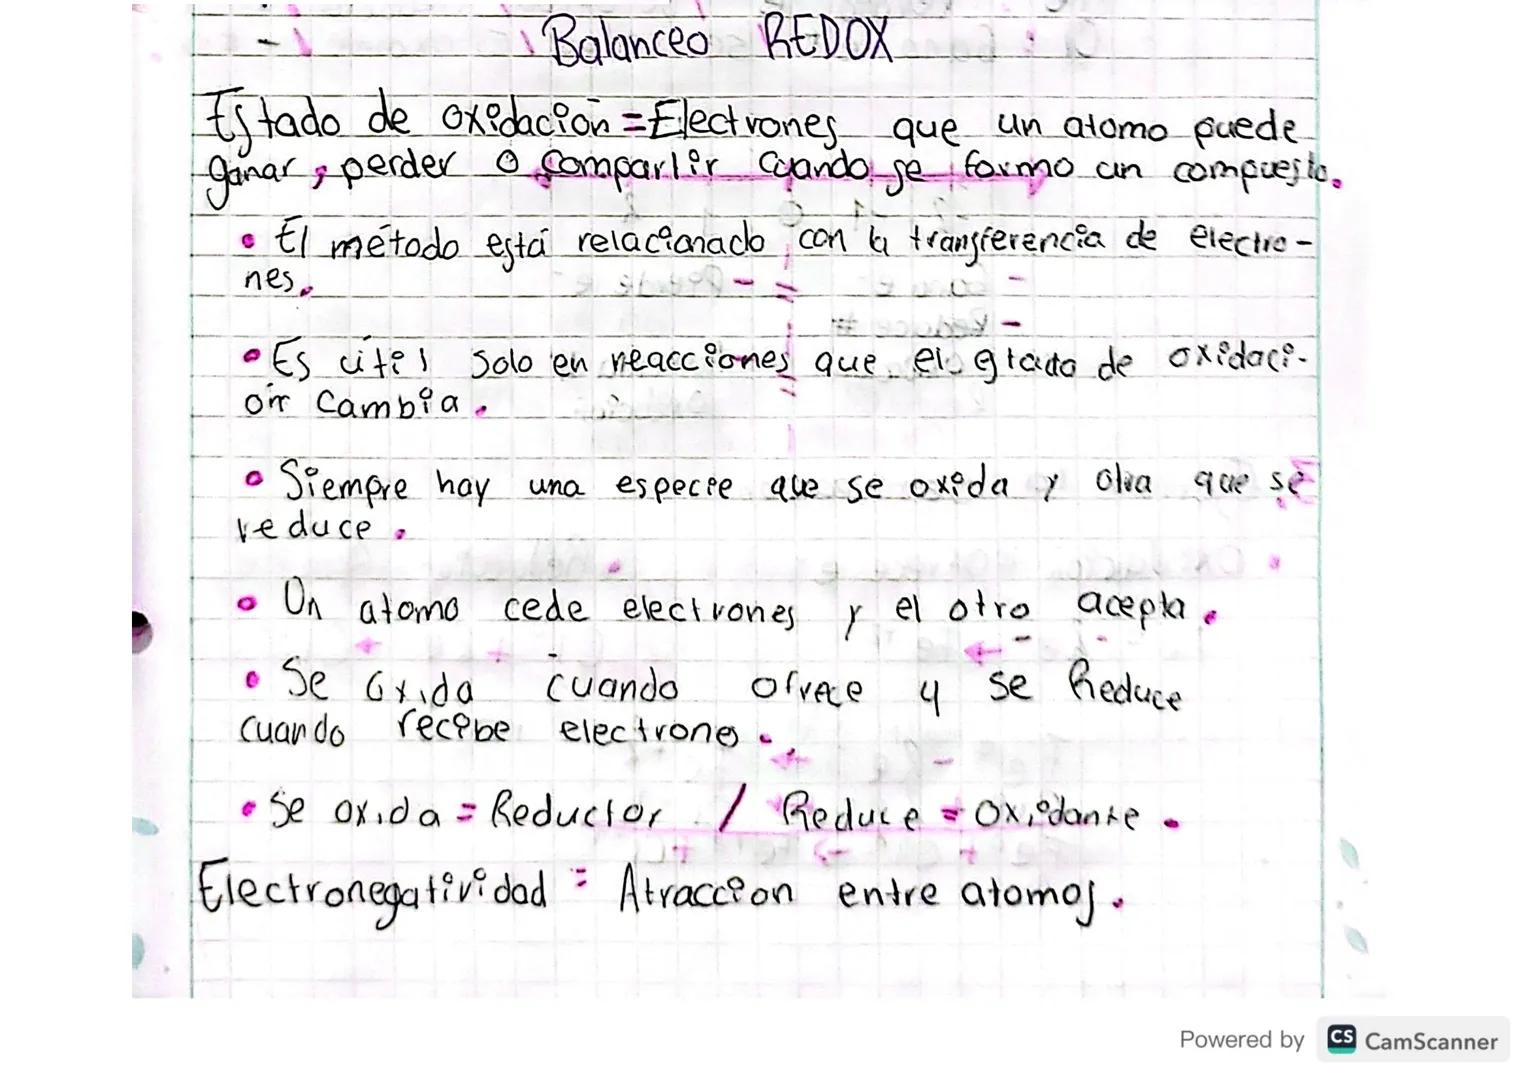 Balanceo REDOX
Estado de oxidación = Electrones que un atomo puede
ganar, perder o compartir cuando se formo un compuesto.
• El método está relacionado con la transferencia de electro-
nes.
• Es útil solo en reacciones que el grado de oxidaci-
ón cambia.
• Siempre hay una especie que se oxida y otra que se
reduce.
• Un atomo cede electrones y el otro acepta.
• Se oxida cuando ofrece y se Reduce
cuando recibe electrones.
• Se oxida = Reductor / Reduce = Oxidante.
Electronegatividad = Atraccion entre atomos.
Powered by CS CamScanner